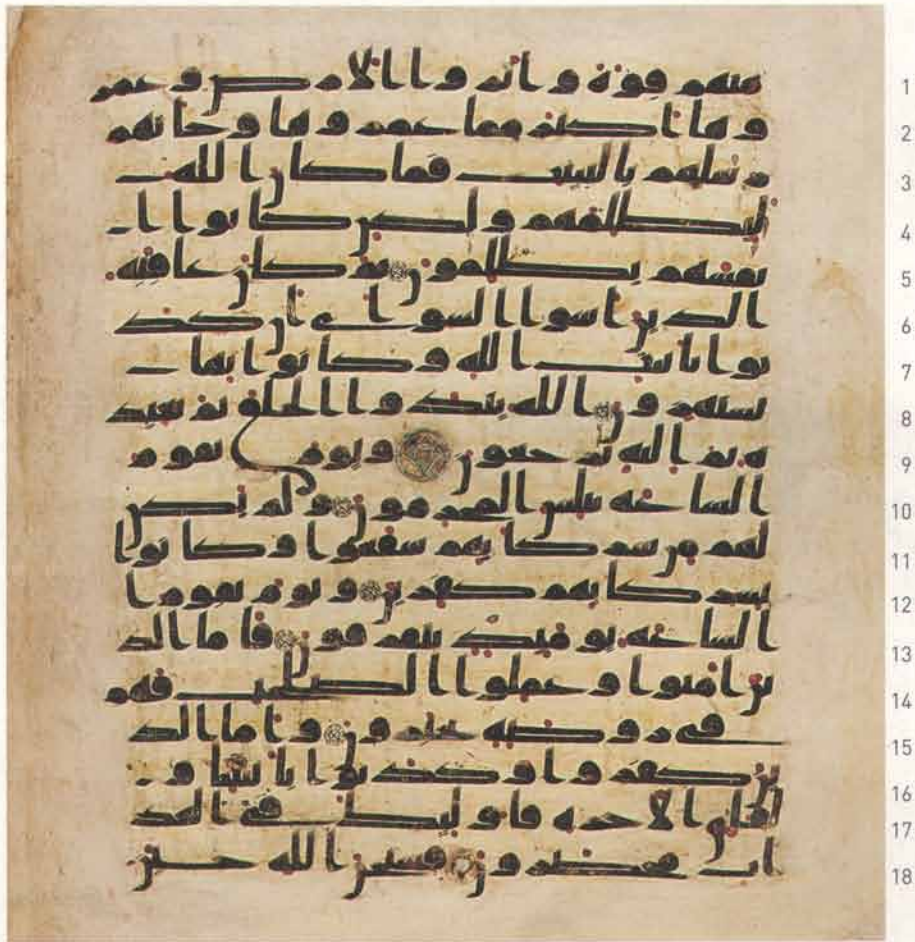 منهم قوة واثاروا الارض وعمر 1
وها اكثر مما عمروها وجاتهم 2
رسلهم بالبينت فما كان الله 3
ليظلمهم ولكن كانوا ا 4
نفسهم يظلمون ثم كان عاقبة 5
الذين اسوا السواى ان كذ 6
بوا بايت الله وكانوا بها 7
يستهزون الله يبدوا الخلق ثم يعيد 8
ه ثم اليه ترجعون ويوم تقوم 9
الساعة يبلس المجرمون ولم يكن 10
لهم من شركايهم شفعوا وكانوا 11
بشركايهم كفرين ويوم تقوم ا 12
لساعة يوميذ يتفرقون فاما الذ 13
ين امنوا وعملوا الصلحت فهم 14
في روضة يحبرون واما الذ 15
ين كفروا وكذبوا بايتنا و 16
لقاى الاخرة فاوليك في العذ 17
اب محضرون فسبحن الله حين 18